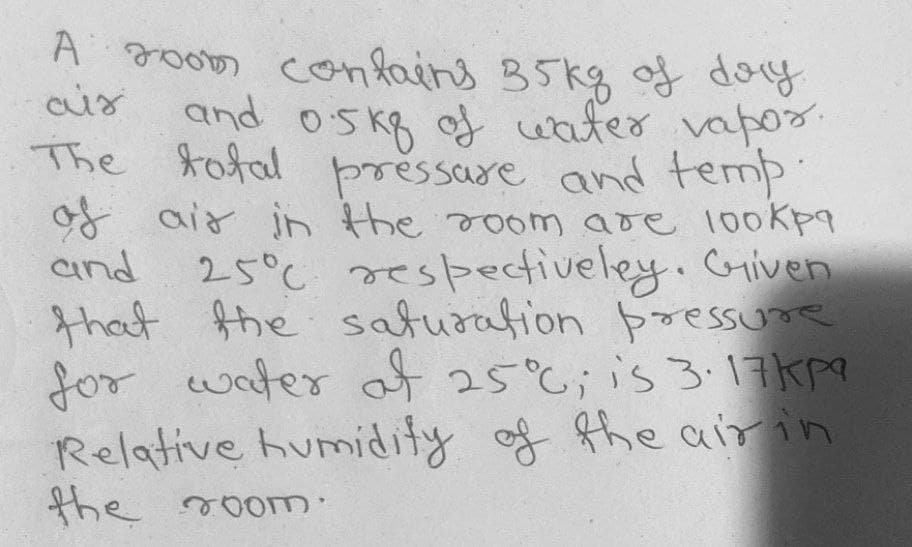 A room contains 35kg of dry
air and 0.5kg of water vapor.
The total pressure and temp.
of air in the room are 100kpa
and 25°C respectiveley. Given
that the saturation pressure
for water at 25°C; is 3.17kpa
Relative humidity of the air in
the room.